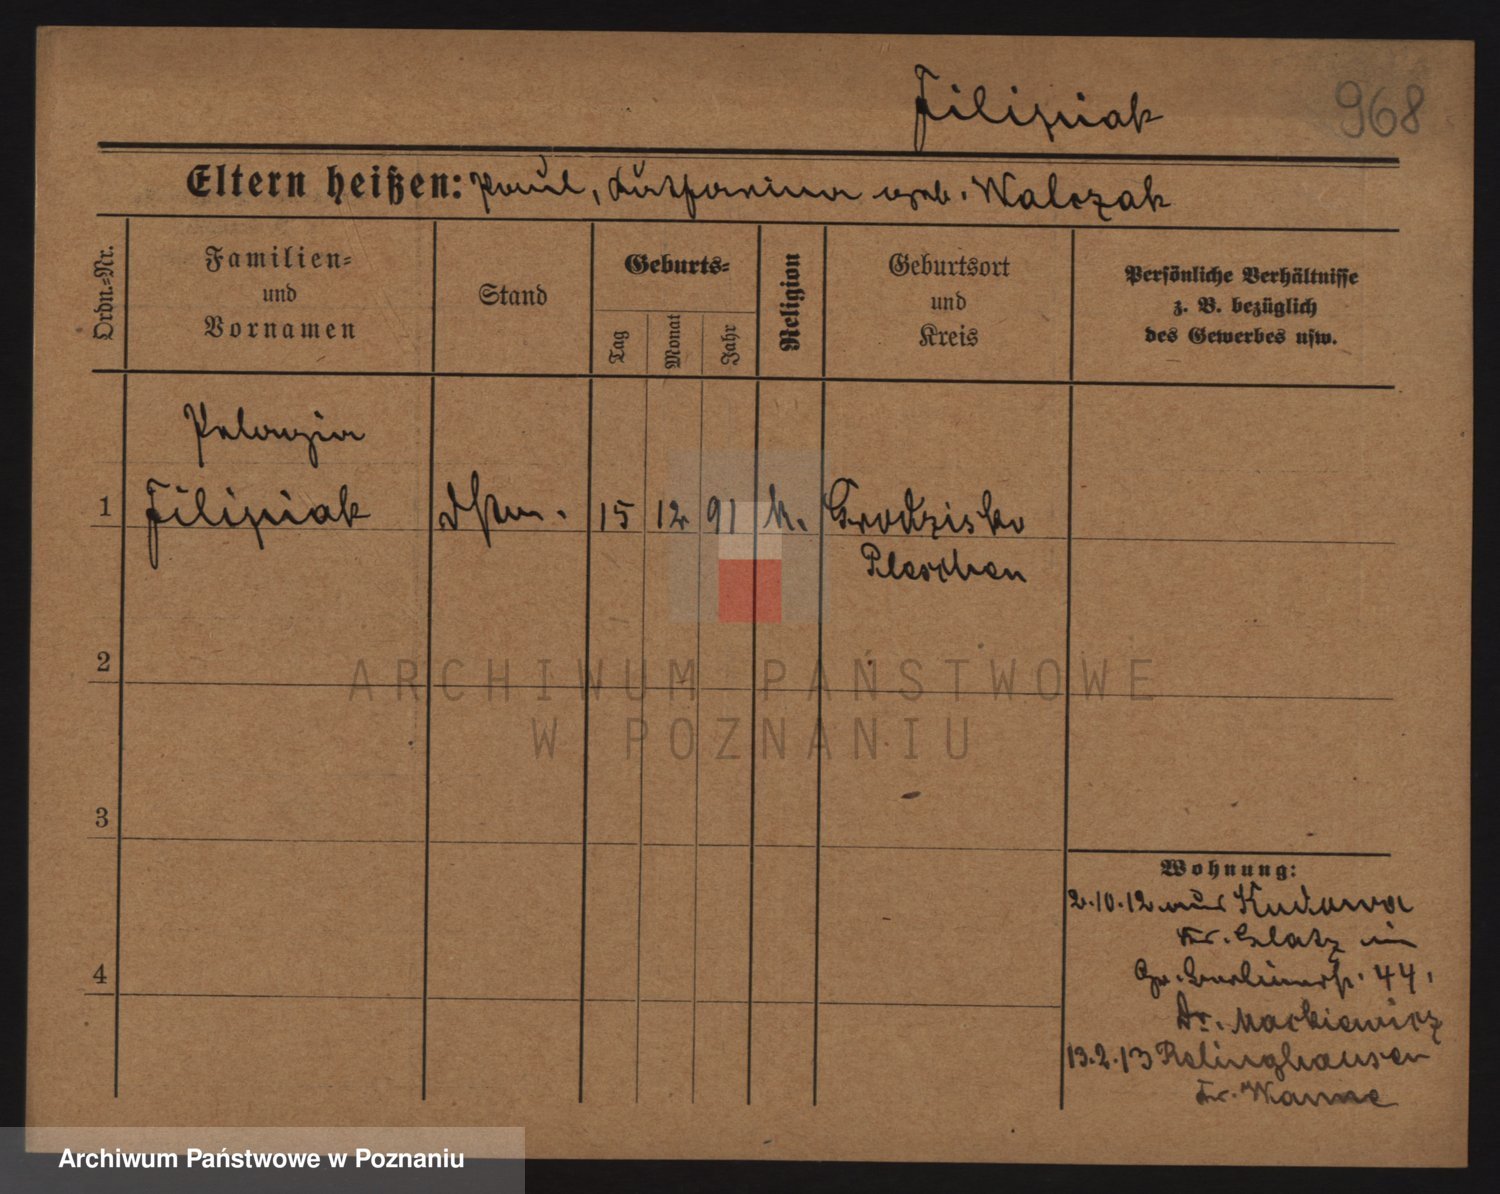 Filipiak
968
Eltern heißen: Paul, Katharina geb. Walczak
Ordn.-Nr.
Familien-
und
Vornamen
Stand
Geburts-
Tag
Monat
Jahr
Religion
Geburtsort
und
Kreis
Persönliche Verhältnisse
z. B. bezüglich
des Gewerbes usw.
Pelagia
1 Filipiak 15 12 91 k. Grodzisko
Pleschen
2
3
4
Wohnung:
2.10.12 aus Kudowa
Kr. Glatz in
Gr. Berlinerstr. 44,
Dr. Mackiewicz
13.2.13 Relinghausen
Kr. Wanne
ARCHIWUM PAŃSTWOWE
W POZNANIU
Archiwum Państwowe w Poznaniu